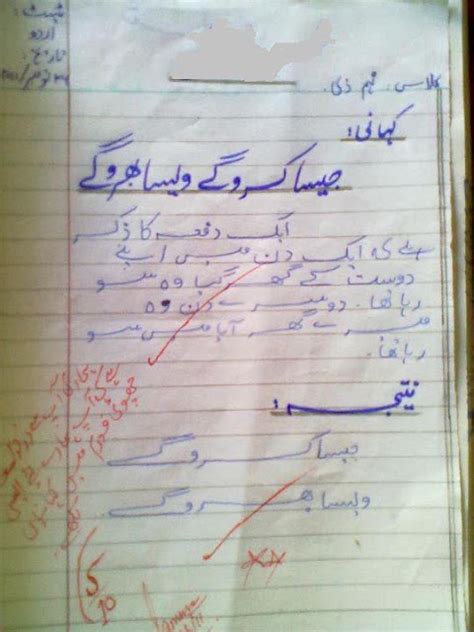 ٹیسٹ:
اردو
تاریخ:
کلاس: نہم ڈی.
کہانی:
جیسا کرو گے ویسا بھرو گے
ایک دفعہ کا ذکر
ہے کہ ایک دن میں اپنے
دوست کے گھر گیا وہ سو
رہا تھا. دوسرے دن وہ
میرے گھر آیا میں سو
رہا تھا.
نتیجہ:
جیسا کرو گے
ویسا بھرو گے
5
10